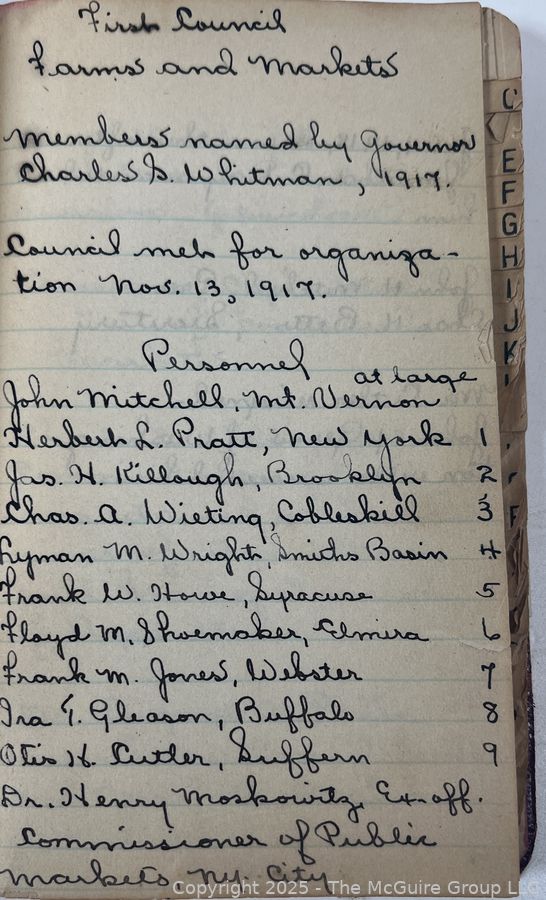 First Council
Farms and Markets
Members named by Governor
Charles S. Whitman, 1917.
Council met for organiza-
tion Nov. 13, 1917.
Personnel
at large
John Mitchell, Mt. Vernon
Herbert L. Pratt, New York 1.
Jas. H. Killough, Brooklyn 2
Chas. A. Wieting, Cobleskill 3
Lyman M. Wright, Smiths Basin 4
Frank W. Howe, Syracuse 5
Floyd M. Shoemaker, Elmira 6
Frank M. Jones, Webster 7
Ira T. Gleason, Buffalo 8
Otis H. Cutler, Suffern 9
Dr. Henry Moskowitz, Ex-off.
Commissioner of Public
Markets, Ny. City
C
E
F
G
H
I
J
K
Copyright 2025 - The McGuire Group LLC